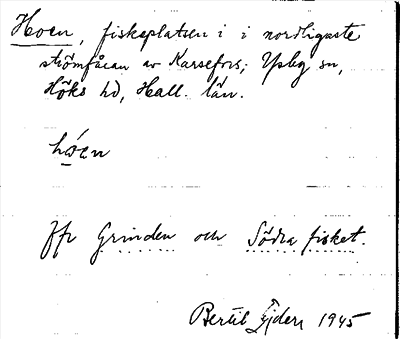 Hoen, fiskeplatsen i i nordligaste
strömfåran av Karsefors; Ysby sn,
Höks hd, Hall. län.
hóen
Jfr Grinden och Södra fisket.
Bertil Ejder 1945